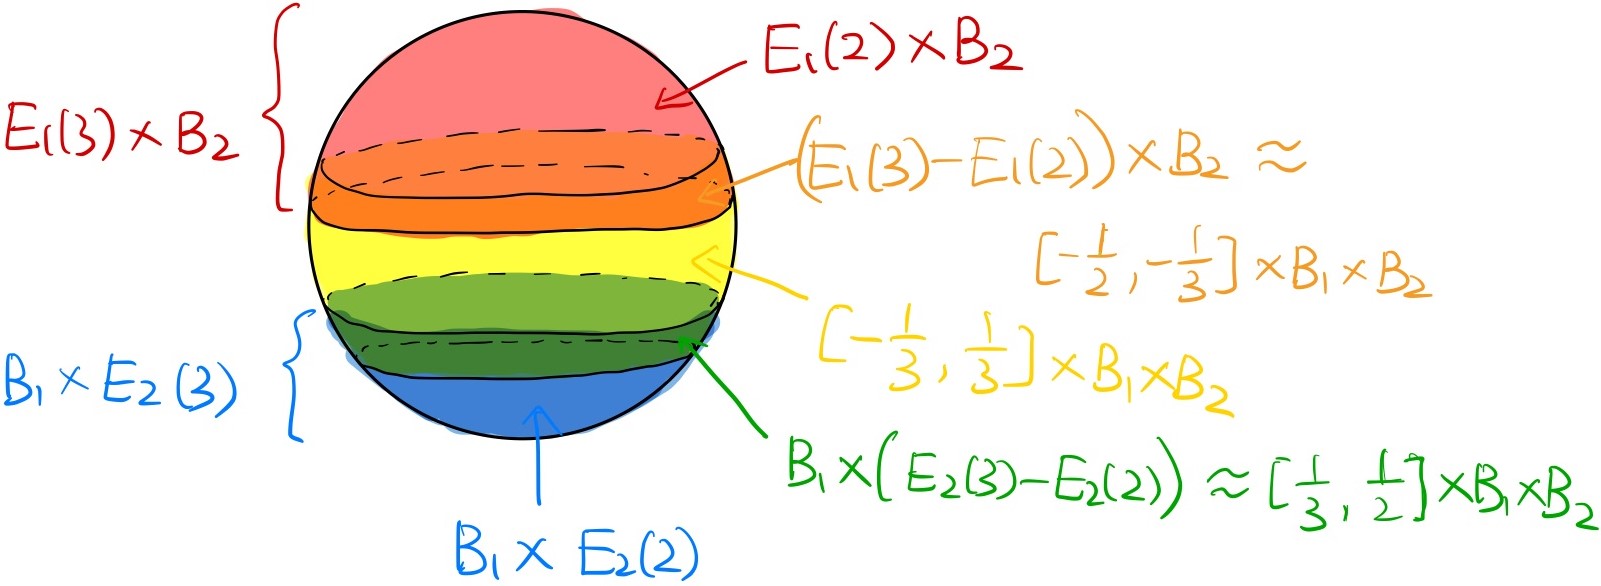 E₁(2) × B₂
E₁(3) × B₂
(E₁(3) − E₁(2)) × B₂ ≈
[−1/2, −1/3] × B₁ × B₂
[−1/3, 1/3] × B₁ × B₂
B₁ × E₂(3)
B₁ × (E₂(3) − E₂(2)) ≈ [1/3, 1/2] × B₁ × B₂
B₁ × E₂(2)